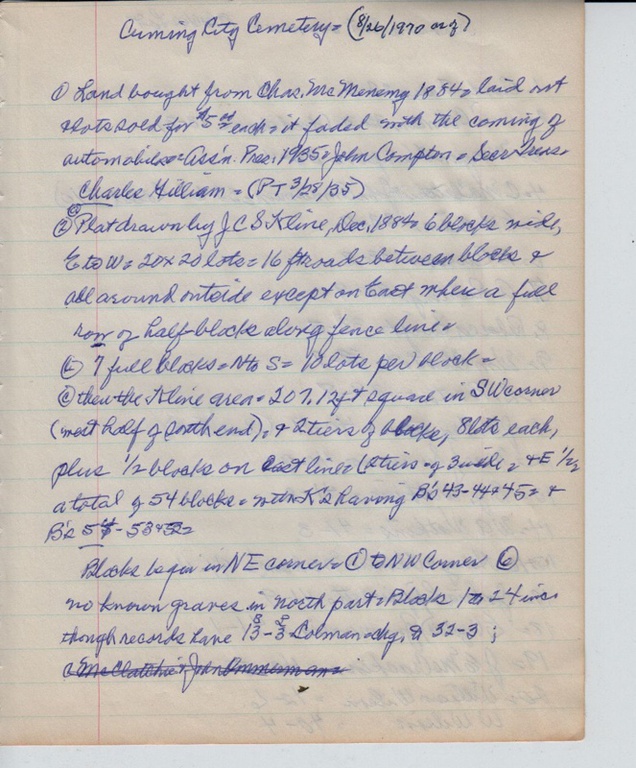 Cuming City Cemetery = (8/26/1970
① Land bought from Chas. McMenemy 1884 = laid out
& lots sold for $5.00 each = it faded with the coming of
automobiles = Ass'n. Pres. 1935 = John Compton = Secr Treas =
Charles Hilliam = (PT 3/28/35)
② ⓐ Plat drawn by J C S Kline, Dec, 1884 = 6 blocks wide,
E to W = 20 x 20 lots = 16 ft roads between blocks &
all around outside except on East where a full
row of half-blocks along fence line =
ⓑ 7 full blocks = N to S = 10 lots per block =
ⓒ then the Kline area = 207.12 ft square in SW corner
(west half of south end), = & 2 tiers of blocks, 8 lots each,
plus 1/2 blocks on East line = (2 tiers of 3 wide = & E 1/2,
a total of 54 blocks = with K's having B's 43-44 & 45 = &
B's 54 - 53 & 52 =
Blocks begin in NE corner = ① to NW Corner ⑥
no known graves in north part = Blocks 1 to 24 inc =
though records have Colman = chg, to 32-3 ;
McClatchie, John